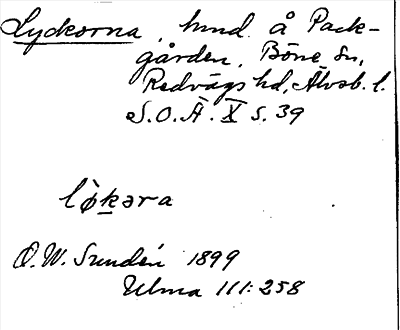 Lyckorna, hmd. å Pack-
gården, Böne sn,
Redvägs hd, Älvsb. l.
S.O.Ä. X s. 39
lø̀kara
O.W. Sundén 1899
Ulma 111:258